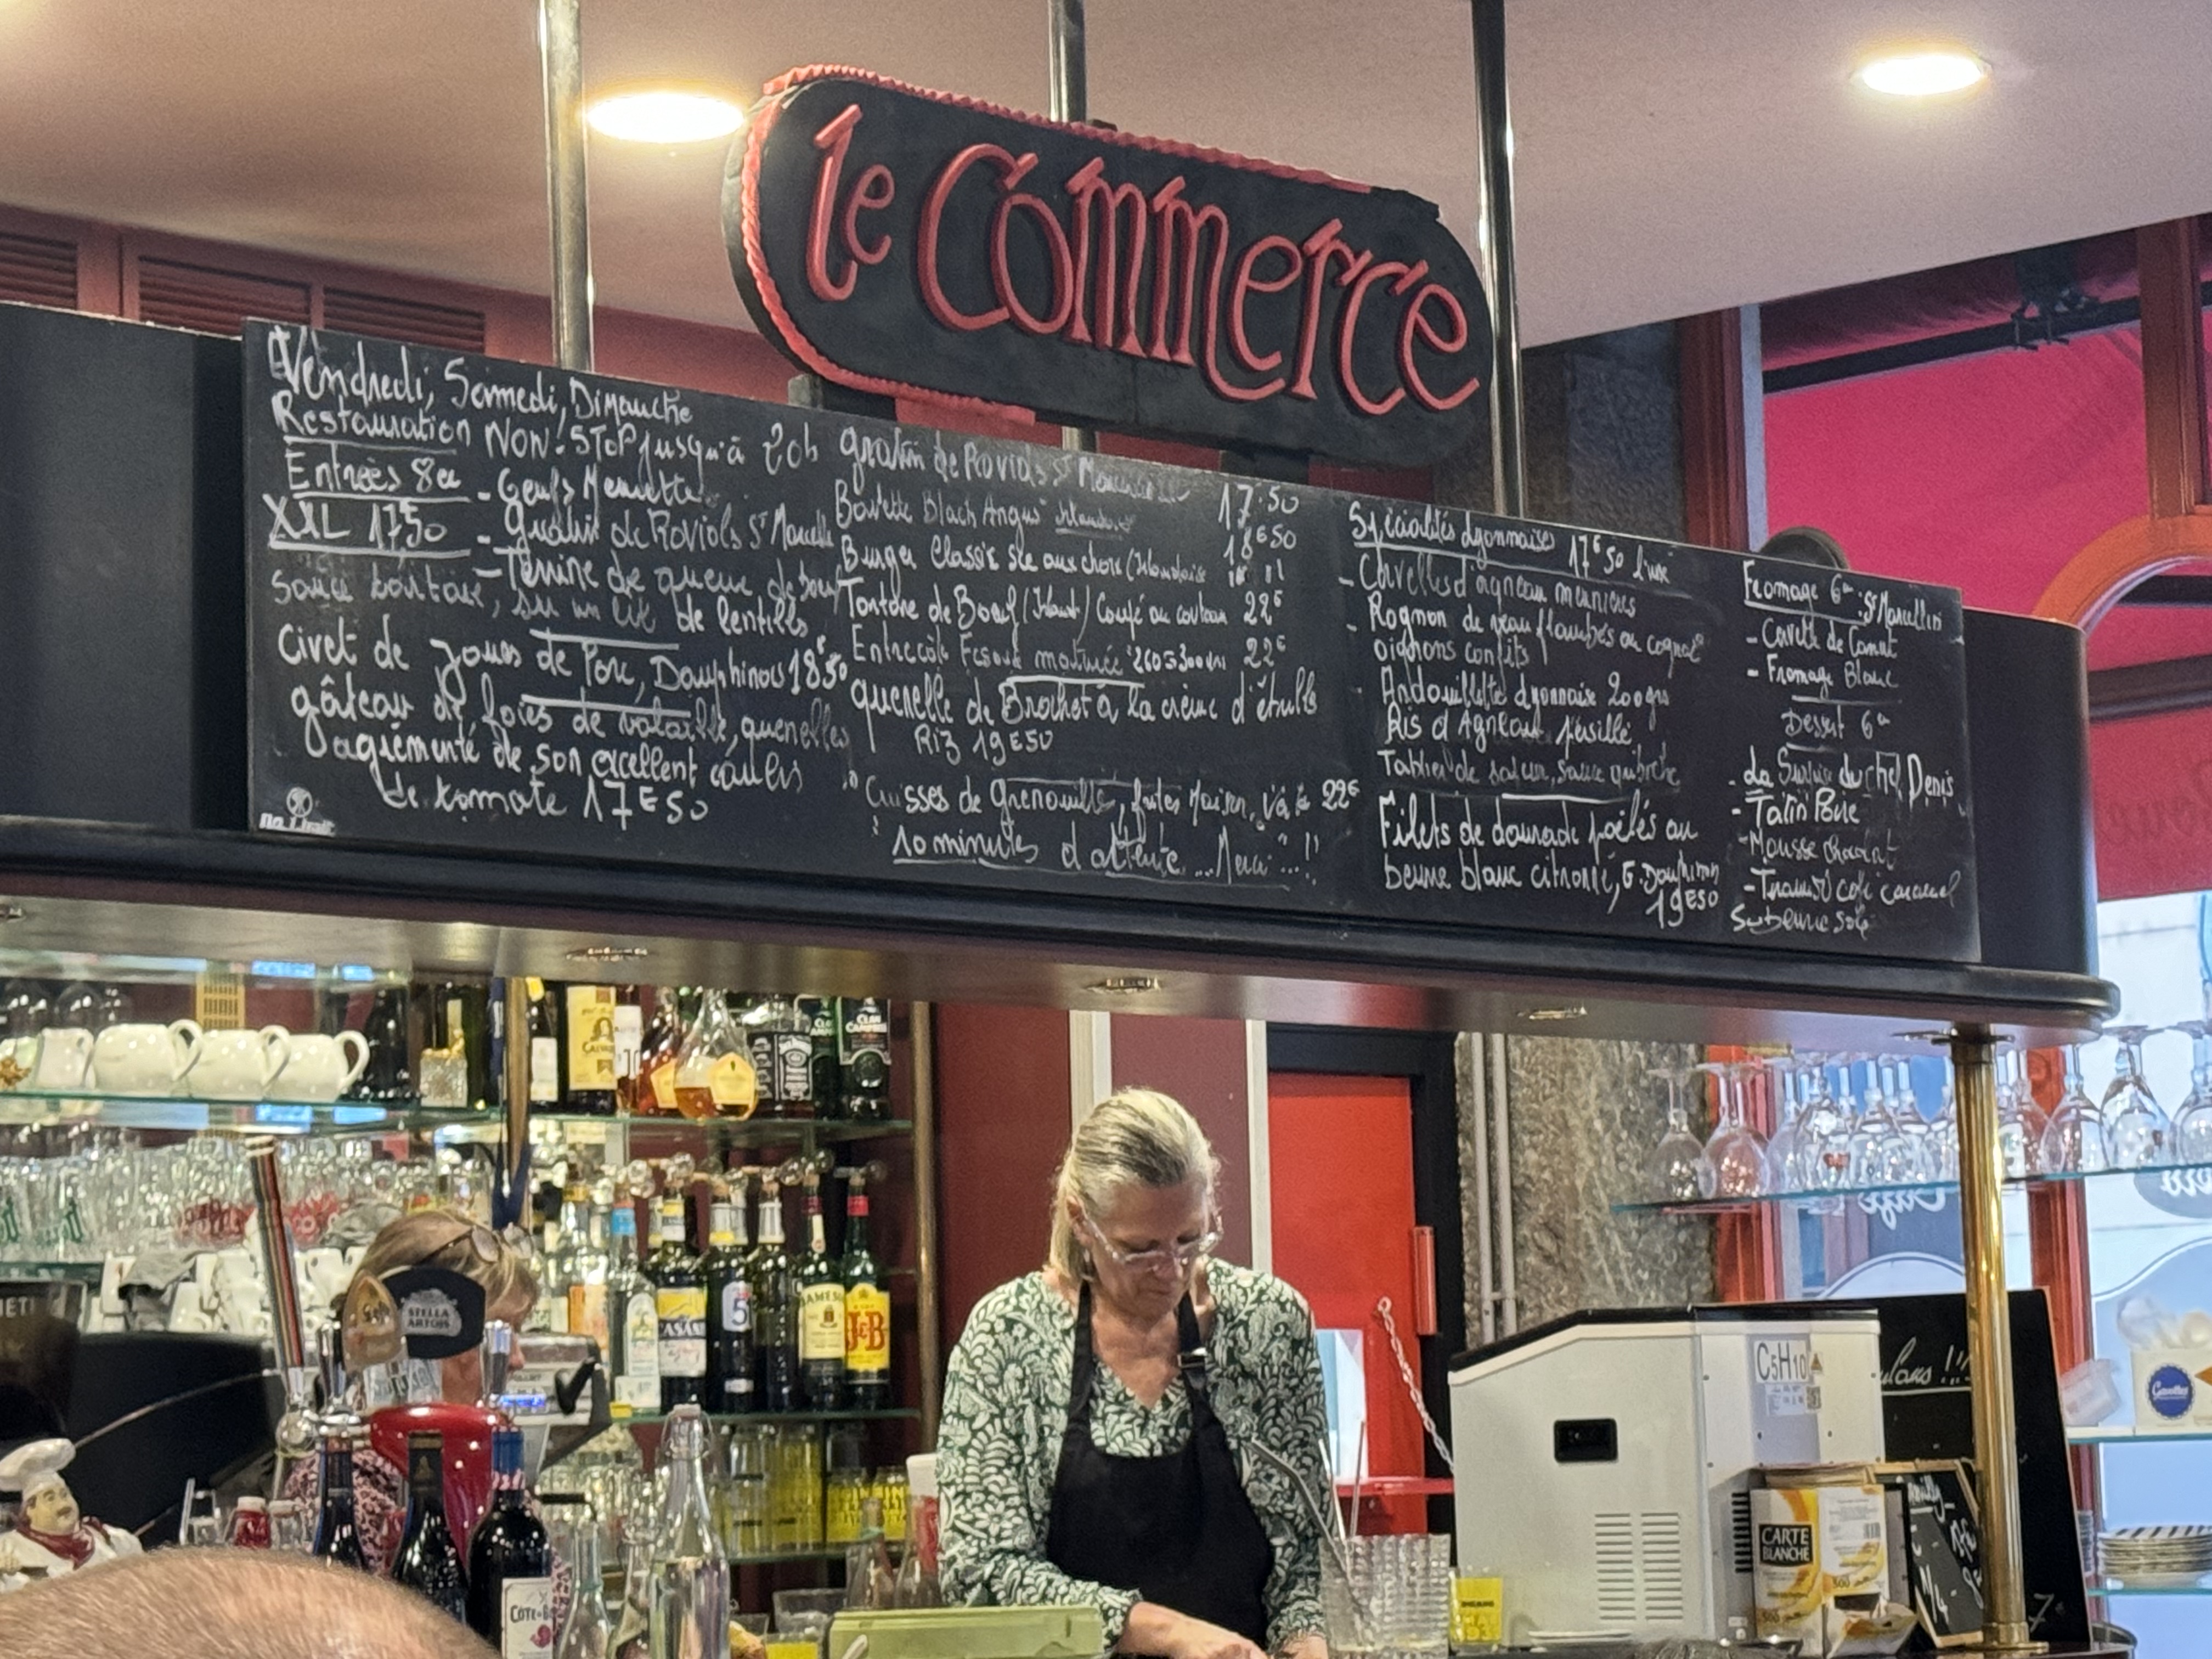 le Commerce
Vendredi, Samedi, Dimanche
Restauration NON-STOP jusqu'à 20h
Entrées 8€
XXL 17,50
- Oeufs Meurette
- Gratin de Raviols St Marcellin
- Terrine de queue de boeuf
sauce tartare, sur un lit de lentilles
Civet de joues de Porc, Dauphinois 18€50
gâteau de foies de volaille, quenelles
agrémenté de son excellent coulis
de tomate 17€50
gratin de Raviols St Marcellin 17.50
Bavette Black Angus 18€50
Burger Classic
Tartare de Boeuf (Irland) Coupé au couteau 22€
Entrecôte maturée 260 300grs 22€
quenelle de Brochet à la crème d'étrille
Riz 19€50
Cuisses de Grenouilles, frites Maison, 22€
10 minutes d'attente... Merci...!!
Spécialités Lyonnaises 17€50 l'une
- Cervelles d'agneau meunières
- Rognon de veau flambés au cognac
oignons confits
- Andouillette Lyonnaise 200grs
Ris d'Agneau persillé
Tablier de sapeur, sauce gribiche
Filets de daurade poêlés au
beurre blanc citronné, G. Dauphinois
19€50
Fromage 6€ St Marcellin
- Cervelle de Canut
- Fromage Blanc
Dessert 6€
- La Surprise du chef Denis
- Tatin Poire
- Mousse chocolat
- Tiramisu café caramel
no limit
CLAN
CAMPBELL
STELLA
ARTOIS
5
J&B
C5H10
CARTE
BLANCHE
500
Gavottes